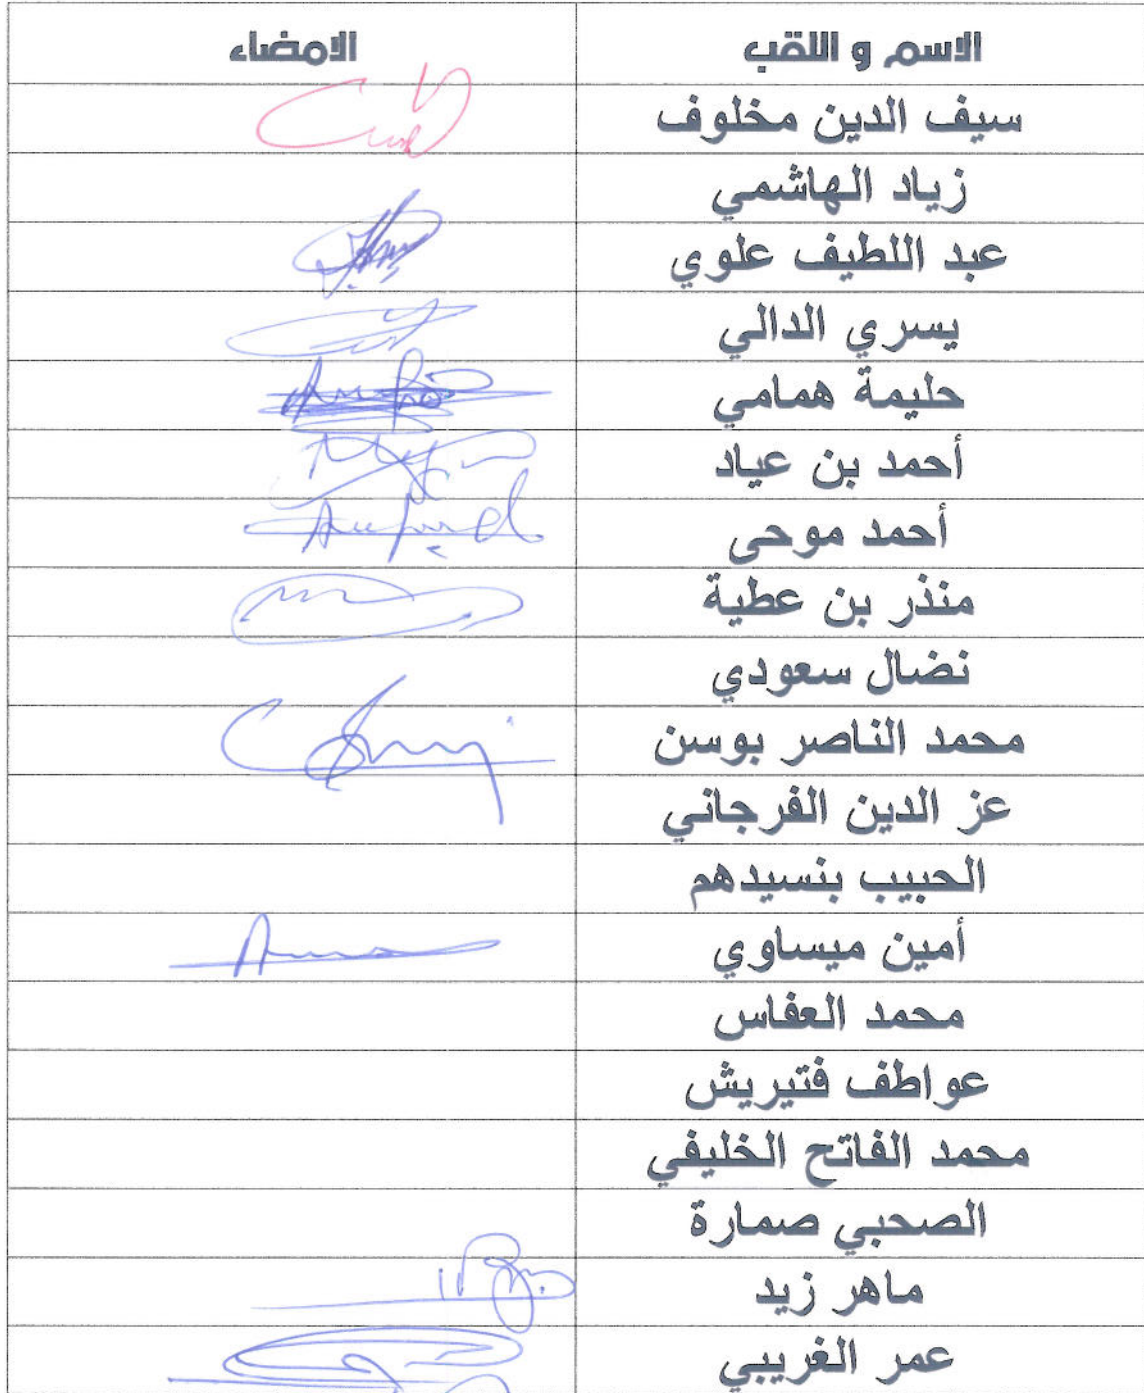 الاسم و اللقب الامضاء
سيف الدين مخلوف
زياد الهاشمي
عبد اللطيف علوي
يسري الدالي
حليمة همامي
أحمد بن عياد
أحمد موحى
منذر بن عطية
نضال سعودي
محمد الناصر بوسن
عز الدين الفرجاني
الحبيب بنسيدهم
أمين ميساوي
محمد العفاس
عواطف فتيريش
محمد الفاتح الخليفي
الصحبي صمارة
ماهر زيد
عمر الغريبي